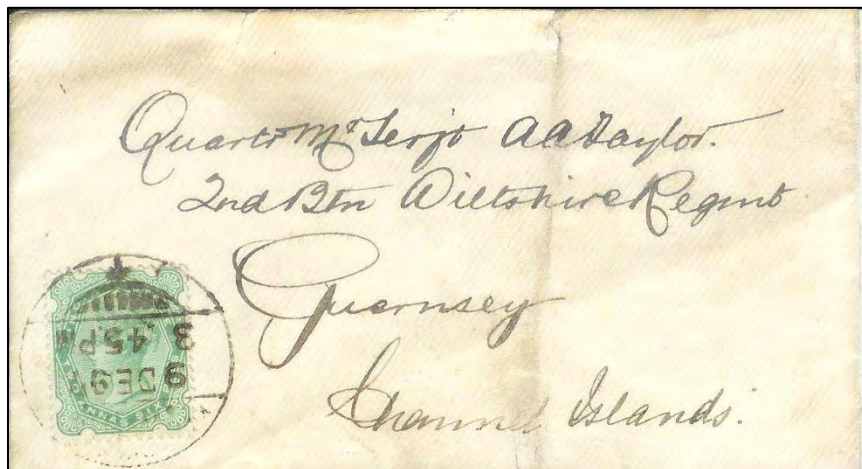 Quartr Mr Serjt A A Taylor.
2nd Btn Wiltshire Regmt
Guernsey
Channel Islands.
3.45 PM
9 DE 9
ANNAS